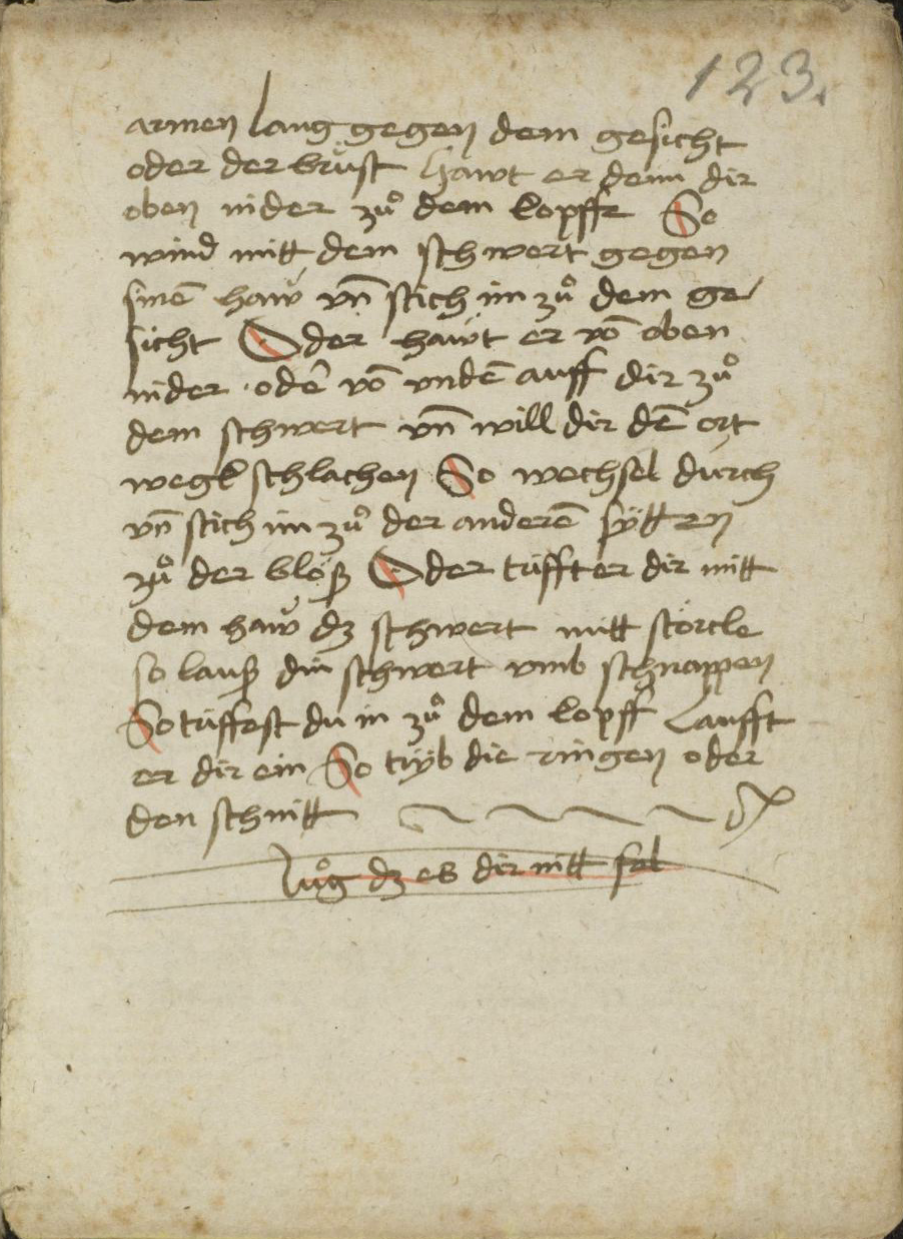 123.
armen lang gegen dem gesicht
oder der brüst Hawt er denn dir
oben nider zuͦ dem kopffe So
wind mitt dem schwert gegen
sinē haw vn̄ stich im zuͦ dem ge
sicht Oder hawt er vō oben
nider · oder vō vndē auff dir zuͦ
dem schwert vn̄ will dir dē ort
wegk schlachen So wechsel durch
vn̄ stich im zuͦ der anderē sÿtten
zuͦ der blöß Oder trifft er dir mitt
dem haw dz schwert mitt störcke
so lauß din schwert vmb schnappen
So triffest du in zuͦ dem kopff Laufft
er dir ein So trÿb die ringen oder
den schnitt
Luͦg dz es dir nitt fel